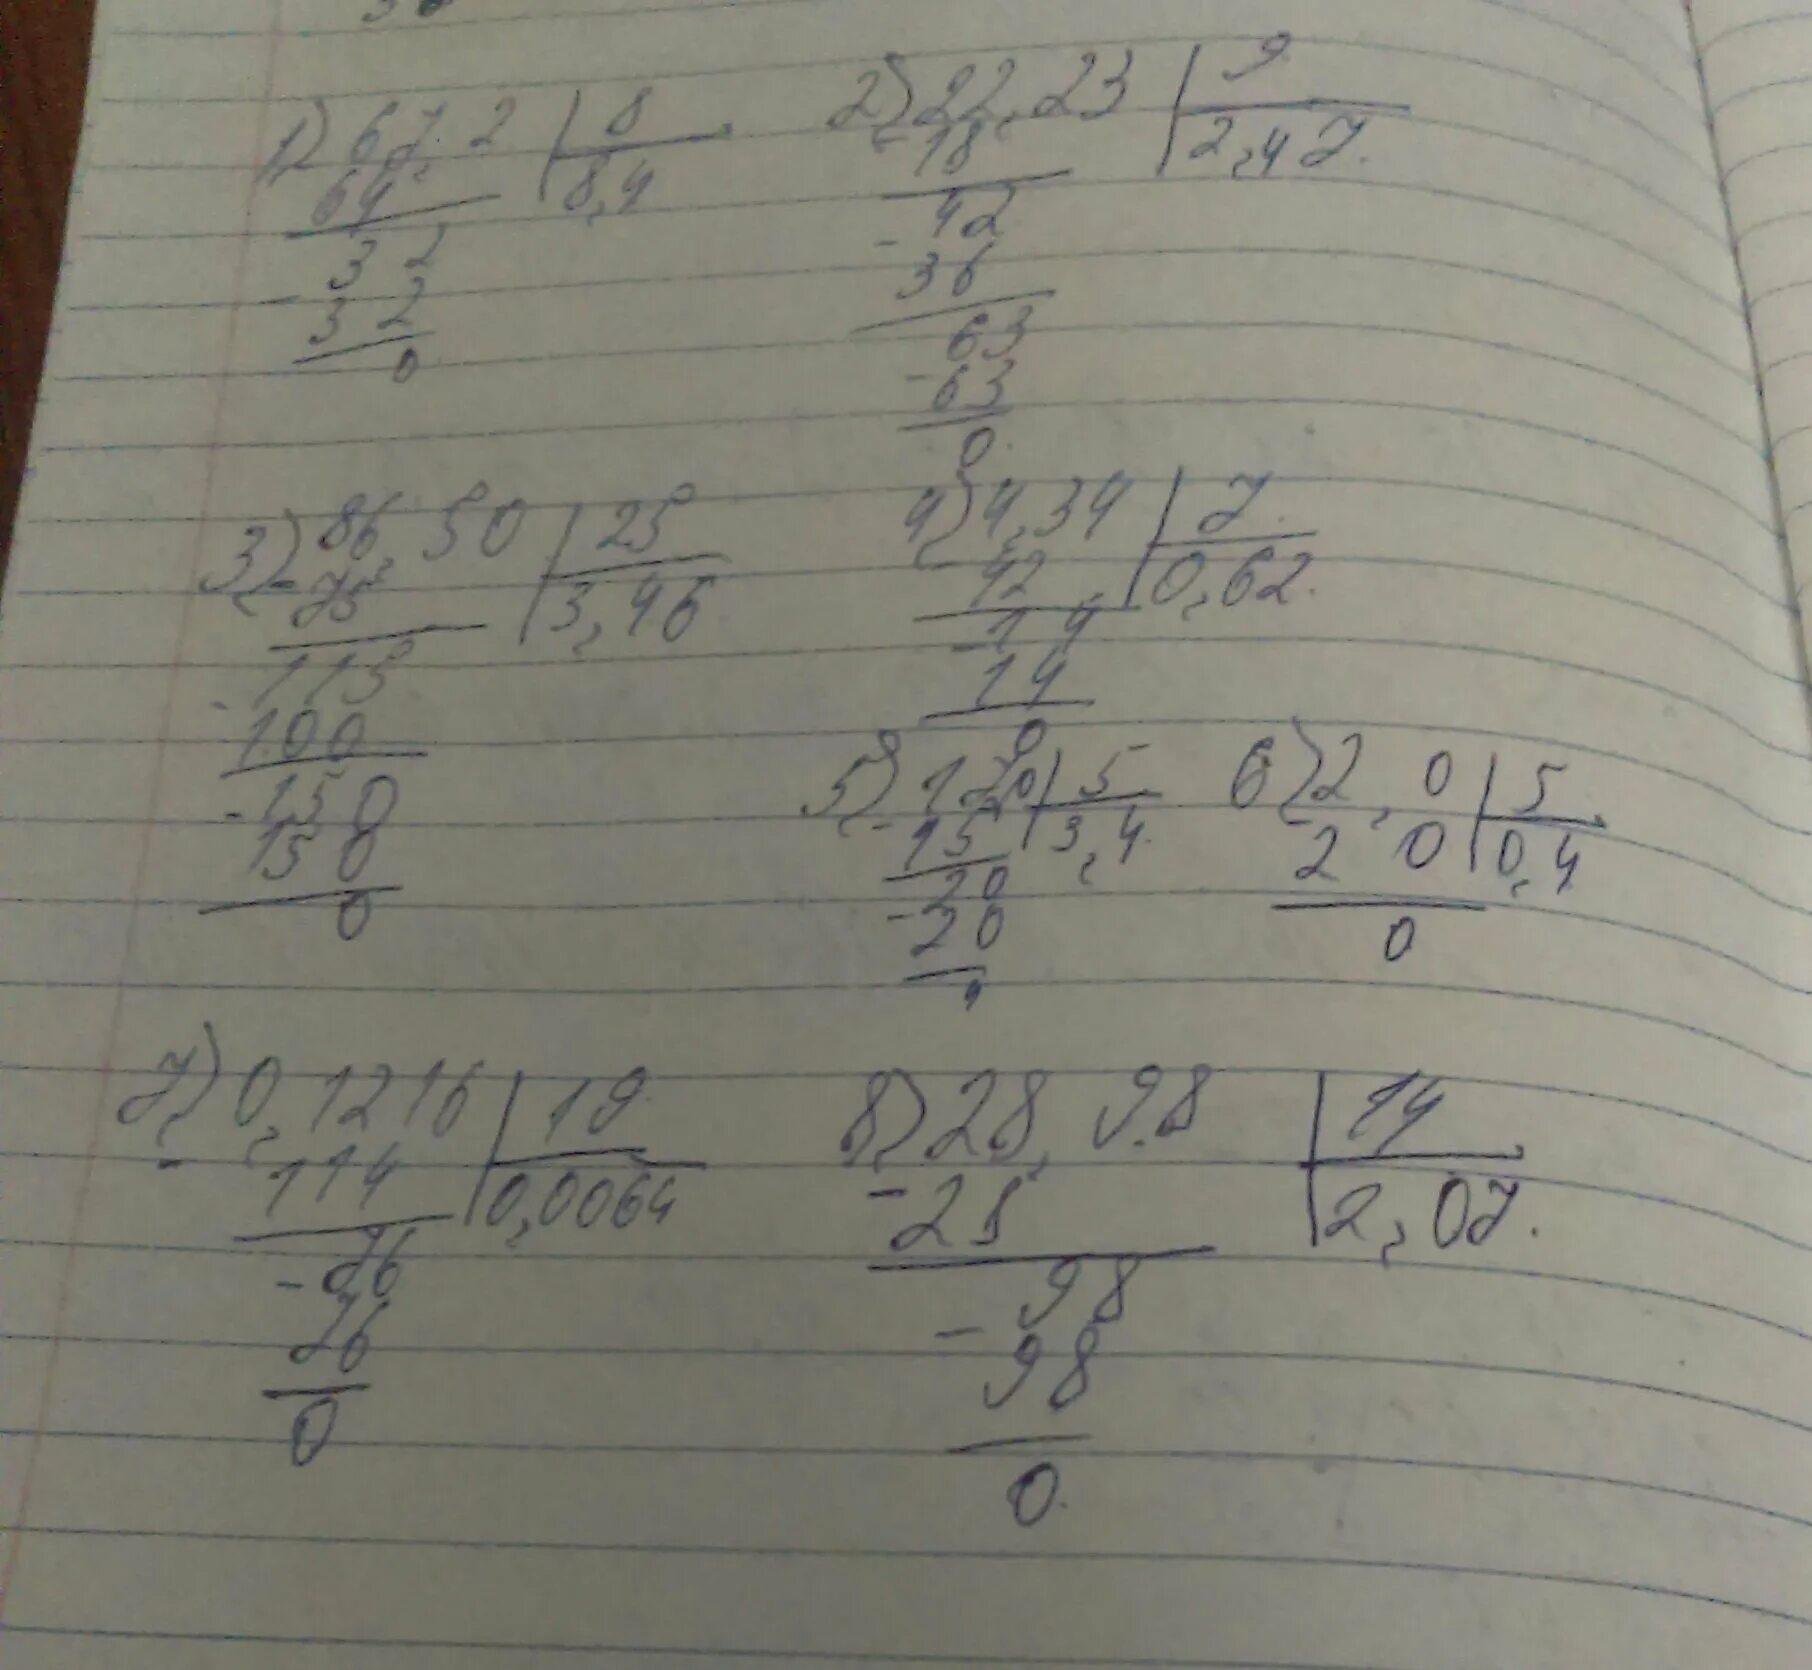 1) 67,2 | 8
64 | 8,4
- 32
32
0
2) 22,23 | 9
- 18 | 2,47.
- 42
36
63
- 63
0.
3) 86,50 | 25
- 75 | 3,46
- 115
100
- 150
150
0
4) 4,34 | 7
- 42 | 0,62.
- 14
14
0
5) 170 | 5
- 15 | 3,4.
20
- 20
6) 2,0 | 5
- 2 0 | 0,4
0
7) 0,1216 | 19
- 114 | 0,0064
- 76
76
0
8) 28,98 | 14
- 28 | 2,07.
- 98
98
0.